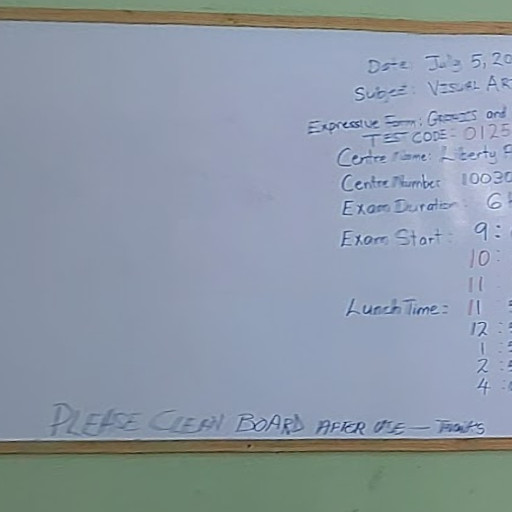 Date: July 5, 20
Subject: VISUAL AR
Expressive Form: GRAPHICS and
TEST CODE: 0125
Centre Name: Liberty A
Centre Number 10030
Exam Duration: 6
Exam Start: 9:
10:
11
Lunch Time: 11
12:
1:
2:
4:
PLEASE CLEAN BOARD AFTER USE — Thanks